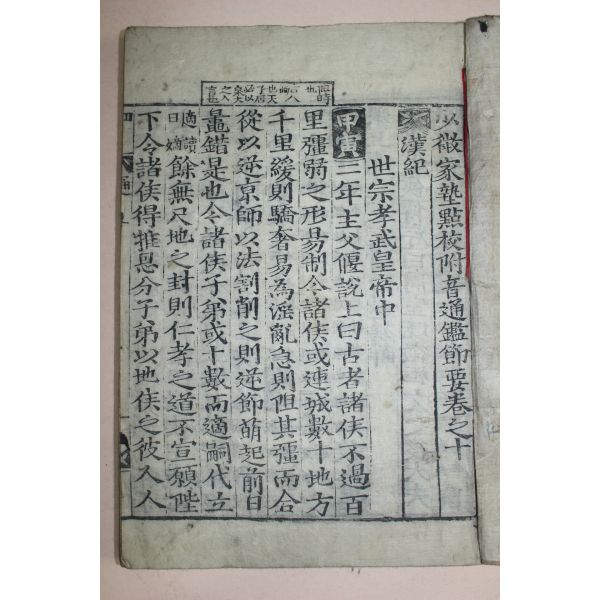 少微家塾點校附音通鑑節要卷之十
漢紀
世宗孝武皇帝中
甲寅 二年主父偃說上曰古者諸侯不過百
里彊弱之形易制今諸侯或連城數十地方
千里緩則驕奢易為淫亂急則阻其彊而合
從以逆京師以法割削之則逆節萌起前日
鼂錯是也今諸侯子弟或十數而適嗣代立
適讀曰嫡 餘無尺地之封則仁孝之道不宣願陛
下令諸侯得推恩分子弟以地侯之彼人人